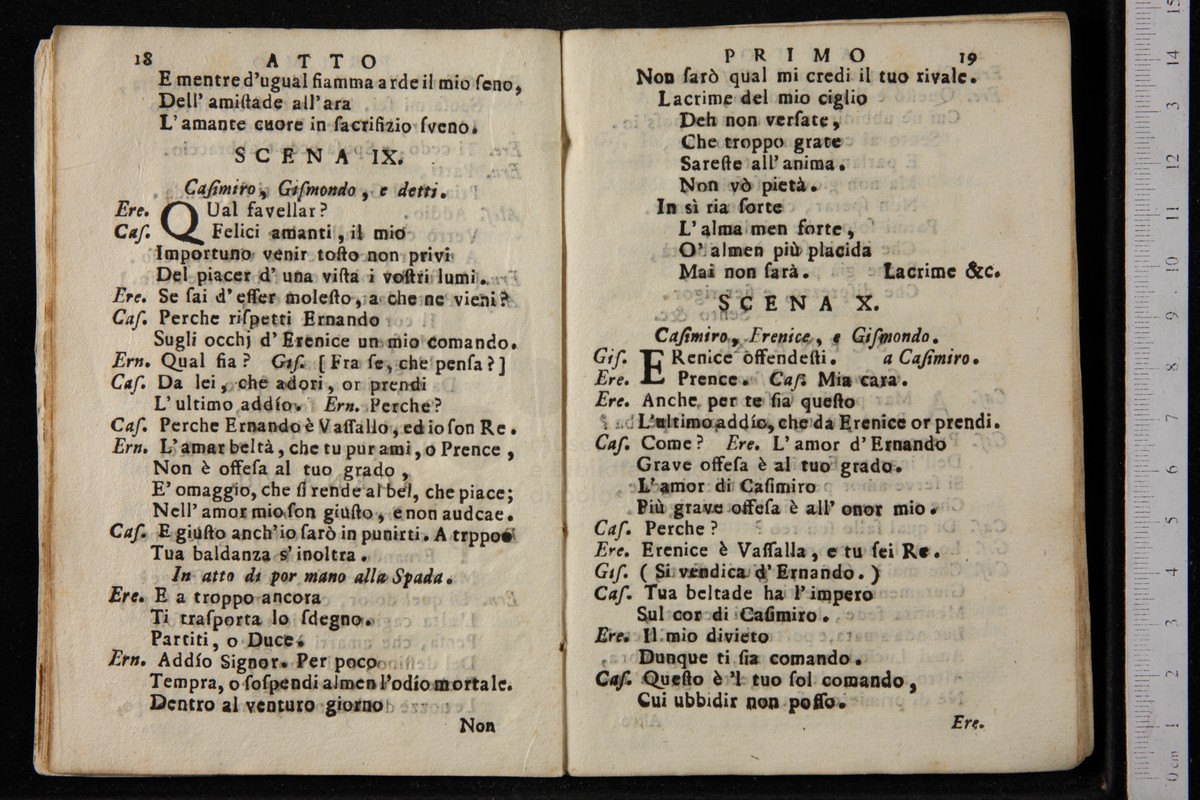 18 ATTO
E mentre d'ugual fiamma arde il mio ſeno,
Dell' amiſtade all' ara
L' amante cuore in ſacrifizio ſveno.
SCENA IX.
Caſimiro, Giſmondo, e detti.
Ere. QUal favellar?
Caſ. Felici amanti, il mio
Importuno venir toſto non privi
Del piacer d' una viſta i voſtri lumi.
Ere. Se ſai d' eſſer moleſto, a che ne vieni?
Caſ. Perche riſpetti Ernando
Sugli occhj d' Erenice un mio comando.
Ern. Qual fia? Giſ. [Fra ſe, che penſa?]
Caſ. Da lei, che adori, or prendi
L' ultimo addío. Ern. Perche?
Caſ. Perche Ernando è Vaſſallo, ed io ſon Re.
Ern. L' amar beltà, che tu pur ami, o Prence,
Non è offeſa al tuo grado,
E' omaggio, che ſi rende al bel, che piace;
Nell' amor mio ſon giuſto, e non audcae.
Caſ. E giuſto anch' io ſarò in punirti. A trppo
Tua baldanza s' inoltra.
In atto di por mano alla Spada.
Ere. E a troppo ancora
Ti traſporta lo ſdegno.
Partiti, o Duce.
Ern. Addío Signor. Per poco
Tempra, o ſoſpendi almen l'odio mortale.
Dentro al venturo giorno
Non
PRIMO 19
Non ſarò qual mi credi il tuo rivale.
Lacrime del mio ciglio
Deh non verſate,
Che troppo grate
Sareſte all' anima.
Non vò pietà.
In sì ria ſorte
L' alma men forte,
O' almen più placida
Mai non ſarà. Lacrime &c.
SCENA X.
Caſimiro, Erenice, e Giſmondo.
Giſ. ERenice offendeſti. a Caſimiro.
Ere. Prence. Caſ. Mia cara.
Ere. Anche per te ſia queſto
L'ultimo addío, che da Erenice or prendi.
Caſ. Come? Ere. L' amor d' Ernando
Grave offeſa è al tuo grado.
L' amor di Caſimiro
Più grave offeſa è all' onor mio.
Caſ. Perche?
Ere. Erenice è Vaſſalla, e tu ſei Re.
Giſ. (Si vendica d' Ernando.)
Caſ. Tua beltade ha l' impero
Sul cor di Caſimiro.
Ere. Il mio divieto
Dunque ti ſia comando.
Caſ. Queſto è 'l tuo ſol comando,
Cui ubbidir non poſſo.
Ere.